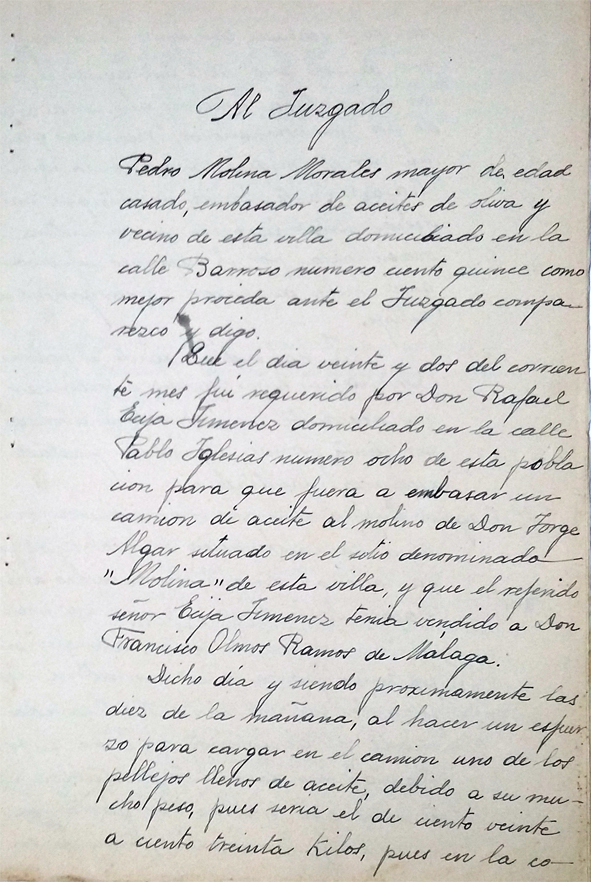 Al Juzgado
Pedro Molina Morales mayor de edad
casado, embasador de aceites de oliva y
vecino de esta villa domiciliado en la
calle Barroso numero ciento quince como
mejor proceda ante el Juzgado compa-
rezco y digo.
Que el dia veinte y dos del corrien
te mes fui requerido por Don Rafael
Ecija Jimenez domiciliado en la calle
Pablo Iglesias numero ocho de esta pobla
cion para que fuera a embasar un
camion de aceite al molino de Don Jorge
Algar situado en el sitio denominado
"Molina" de esta villa, y que el referido
señor Ecija Jimenez tenia vendido a Don
Francisco Olmos Ramos de Málaga.
Dicho dia y siendo proximamente las
diez de la mañana, al hacer un esfuer
zo para cargar en el camion uno de los
pellejos llenos de aceite, debido a su mu-
cho peso, pues seria el de ciento veinte
a ciento treinta Kilos, pues en la co-